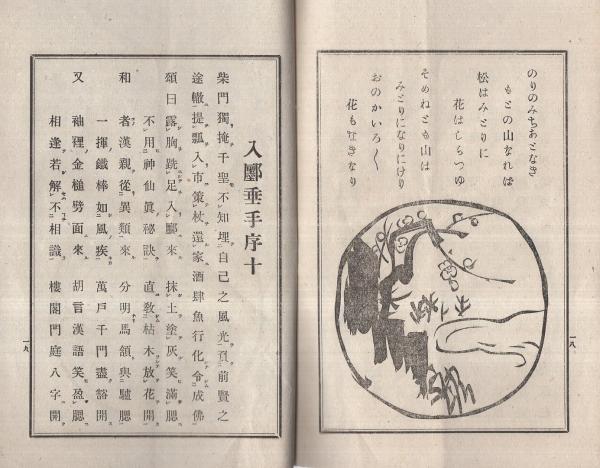 のりのみちあとなき
もとの山なれば
松はみとりに
花はしらつゆ
そめねとも山は
みとりになりにけり
おのかいろ〱
花もさきなり
一八
入鄽垂手序十
柴門獨掩千聖不知埋自己之風光負前賢之
途轍提瓢入市策杖還家酒肆魚行化令成佛
頌曰露胸跣足入鄽來 抹土塗灰笑滿腮
不用神仙眞祕訣 直敎枯木放花開
和 者漢親從異類來 分明馬頷與驢腮
一揮鐵棒如風疾 萬戶千門盡豁開
又 袖裡金槌劈面來 胡言漢語笑盈腮
相逢若解不相識 樓閣門庭八字開
一九